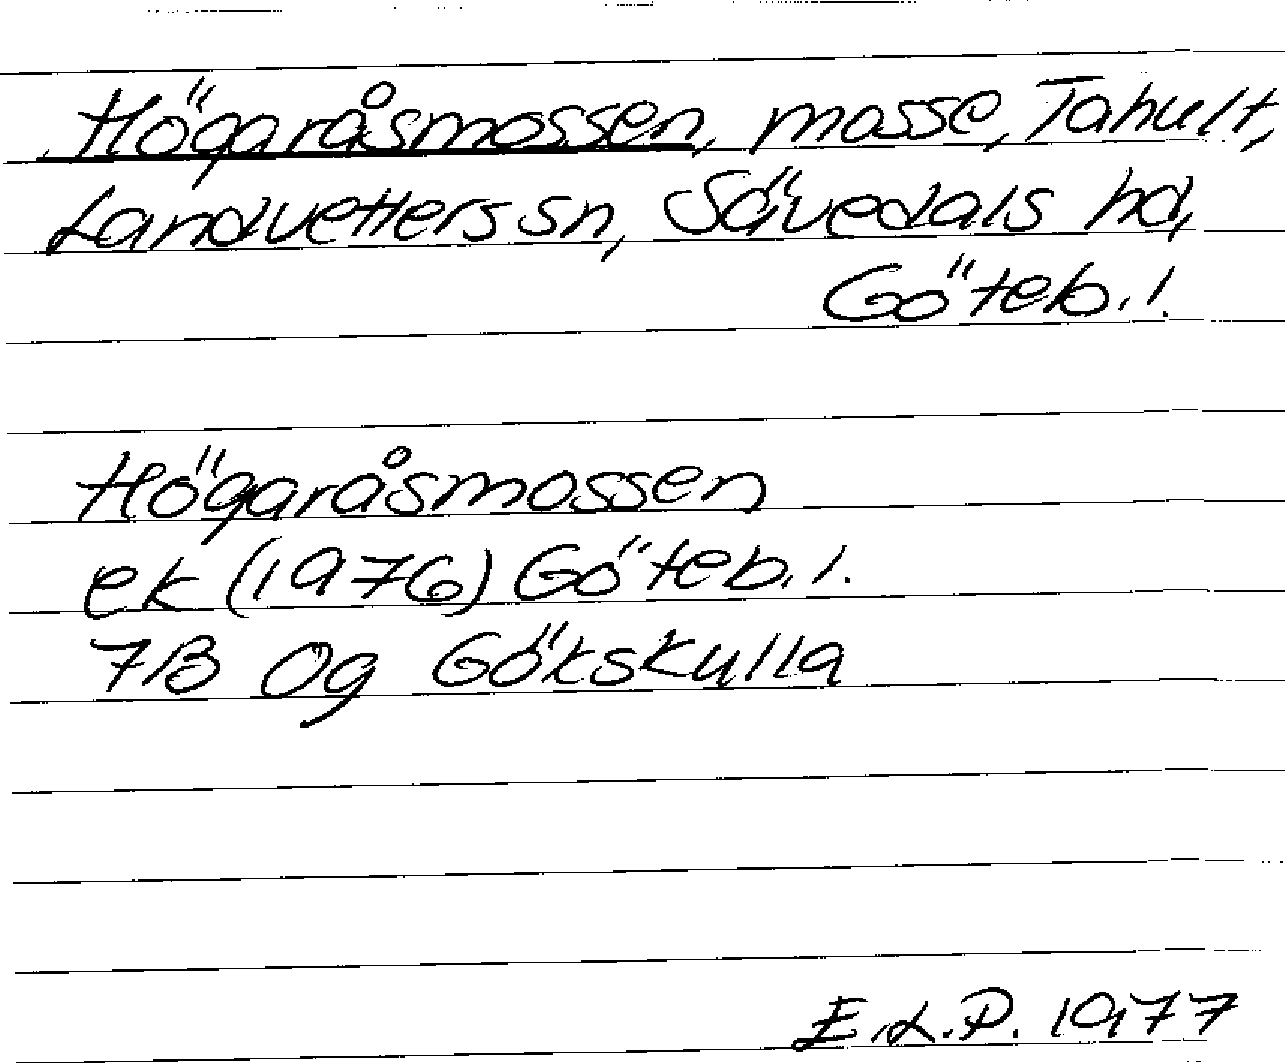 Högaråsmossen, mosse, Tahult,
Landvetters sn, Sävedals hd,
Göteb. l.
Högaråsmossen
ek (1976) Göteb. l.
7B 0g Gökskulla
E.L.P. 1977